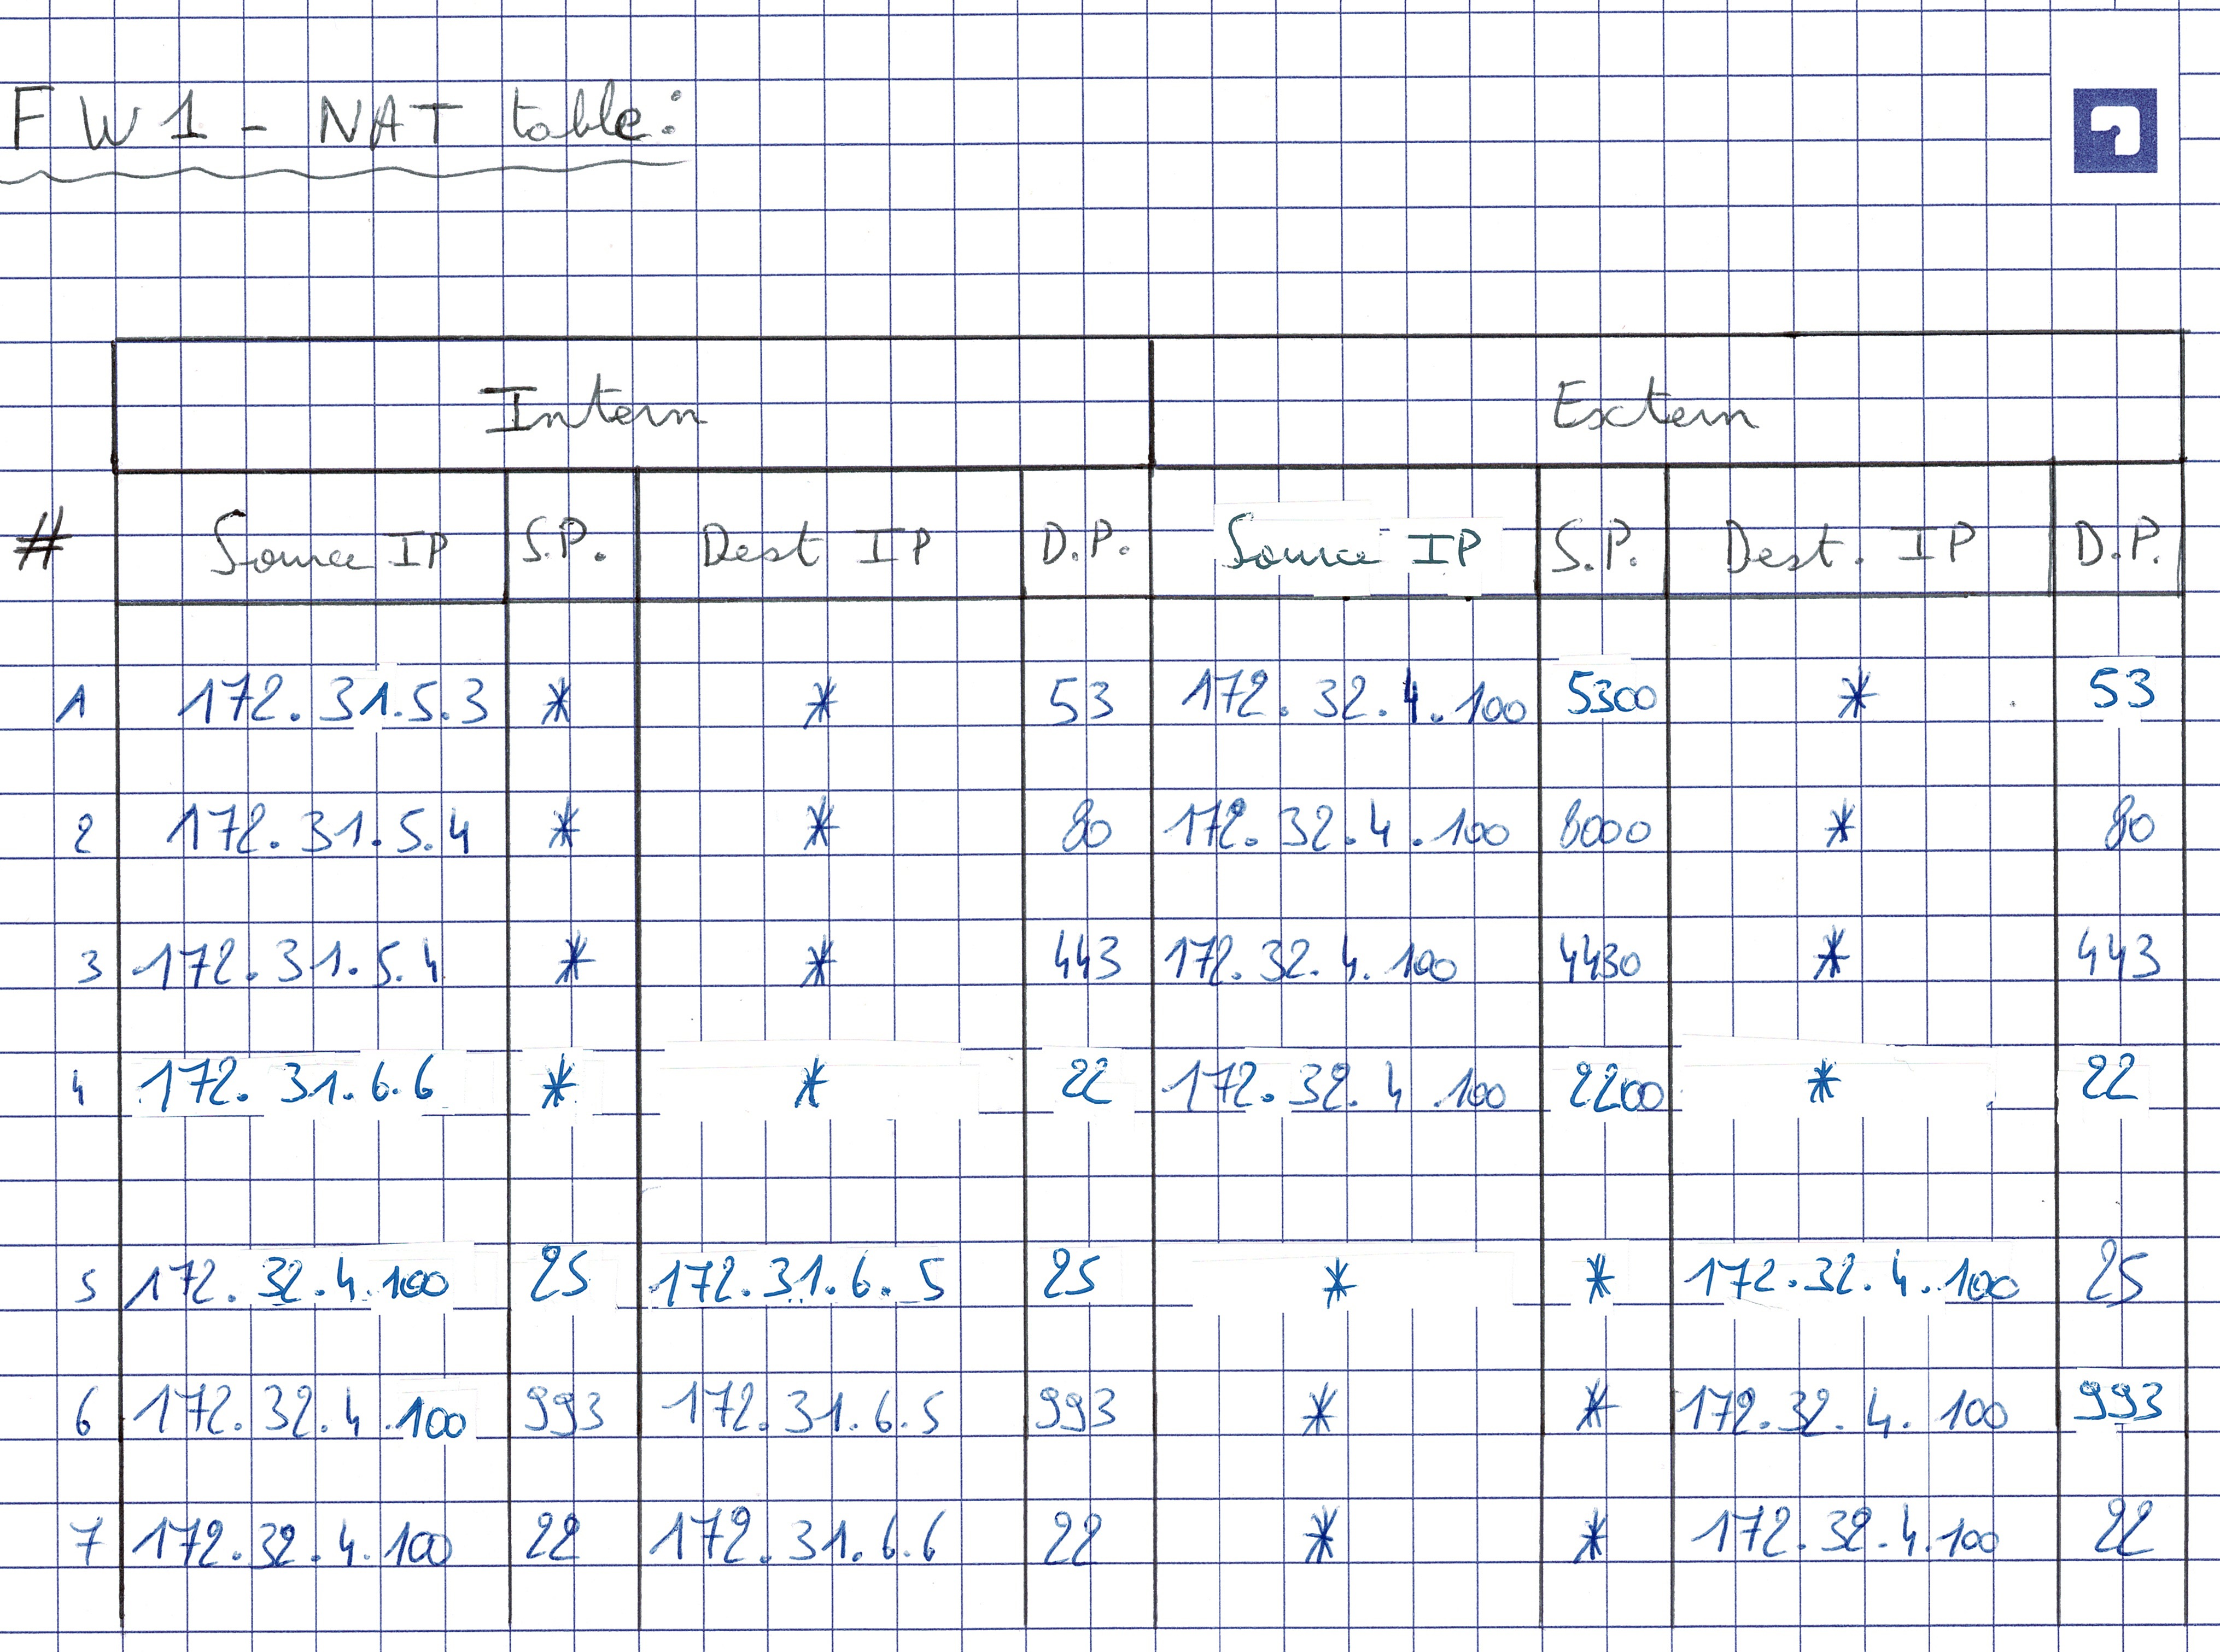 FW1 - NAT table:
Intern Extern
# Source IP S.P. Dest IP D.P. Source IP S.P. Dest. IP D.P.
1 172.31.5.3 * * 53 172.32.4.100 5300 * 53
2 172.31.5.4 * * 80 172.32.4.100 8000 * 80
3 172.31.5.4 * * 443 172.32.4.100 4430 * 443
4 172.31.6.6 * * 22 172.32.4.100 2200 * 22
5 172.32.4.100 25 172.31.6.5 25 * * 172.32.4.100 25
6 172.32.4.100 993 172.31.6.5 993 * * 172.32.4.100 993
7 172.32.4.100 22 172.31.6.6 22 * * 172.32.4.100 22